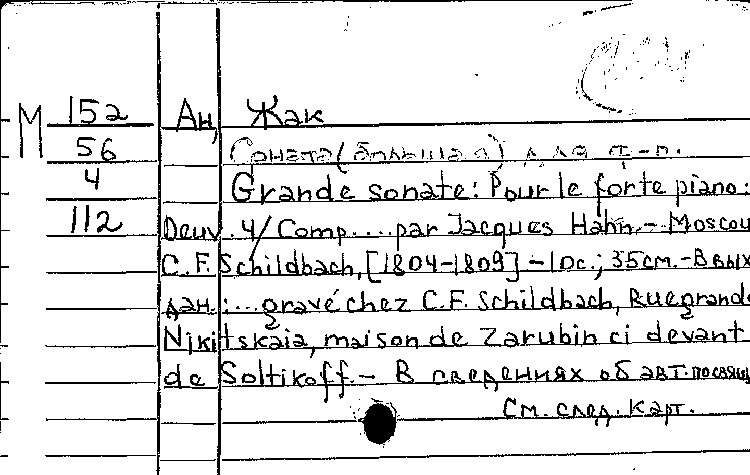 M 152 Ан, Жак
56 Соната (большая) для ф-п.
4 Grande sonate: Pour le forte piano:
112 Oeuv. 4/ Comp....par Jacques Hahn.- Moscou
C.F. Schildbach, [1804-1809] - 10с.; 35см.- В вых
дан.: ...gravé chez C.F. Schildbach, Rue grande
Nikitskaia, maison de Zarubin ci devant
de Soltikoff.- В сведениях об авт: посвящ
См. след. карт.